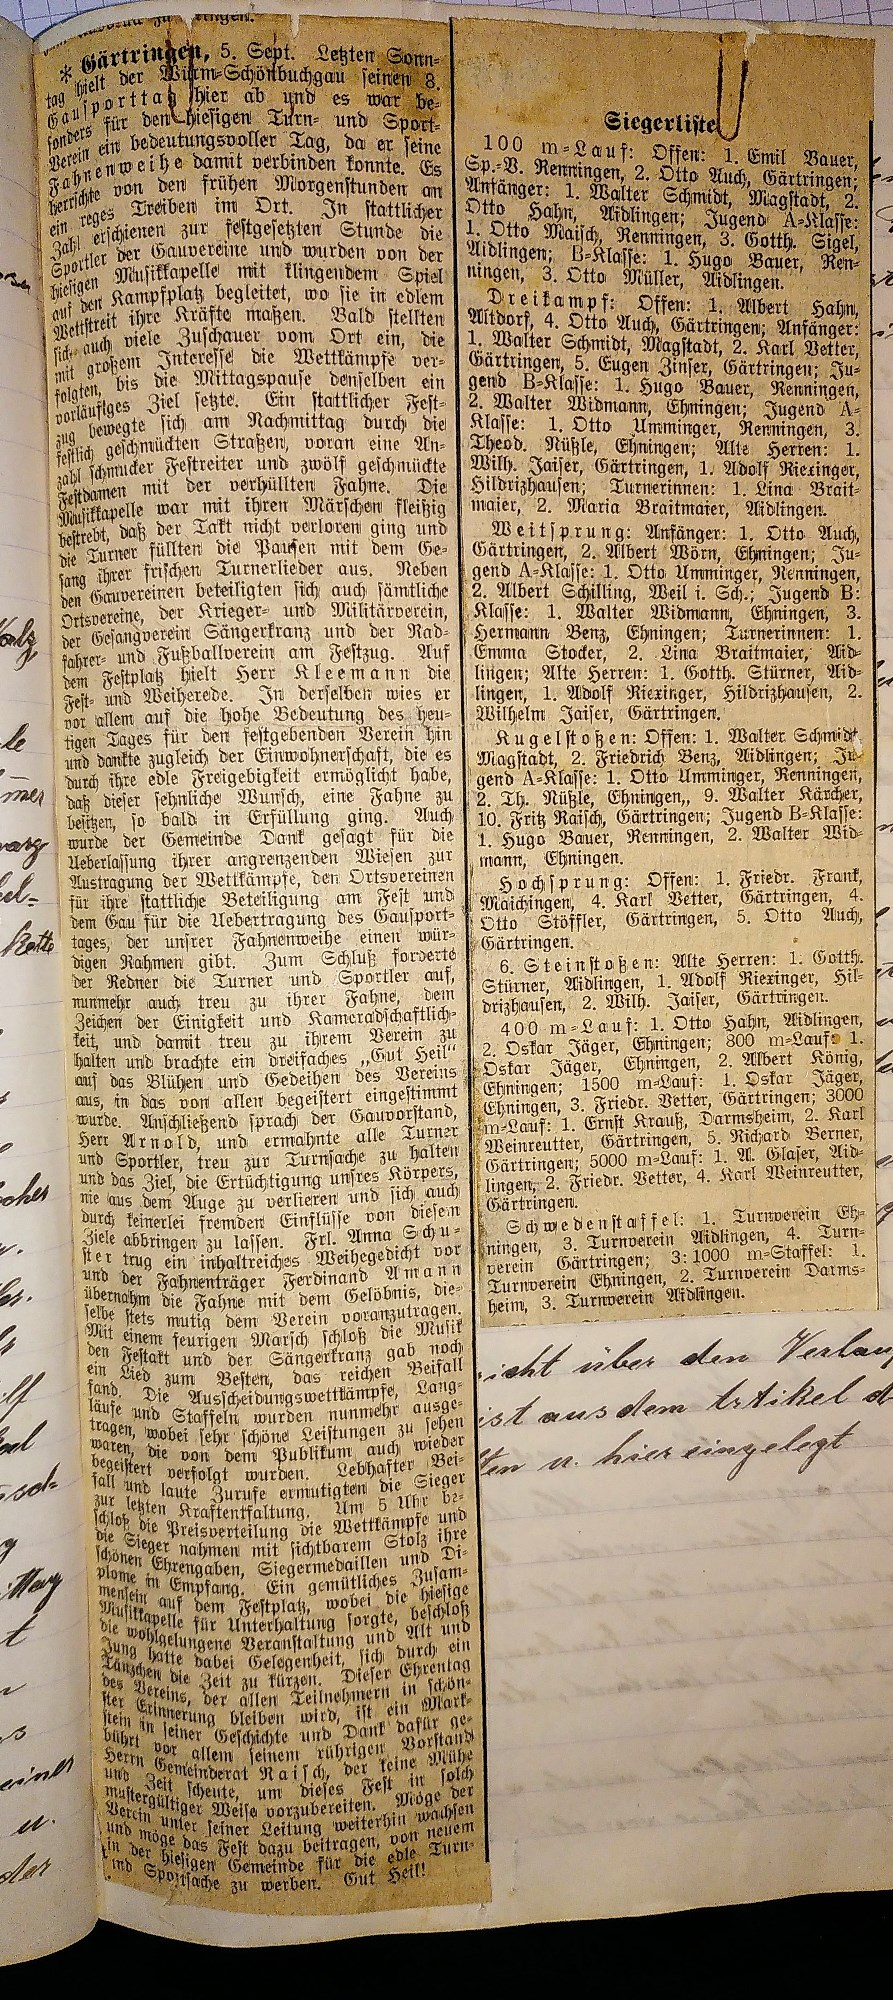 * Gärtringen, 5. Sept. Letzten Sonn-
tag hielt der Würm-Schönbuchgau seinen 8.
Gausporttag hier ab und es war be-
sonders für den hiesigen Turn- und Sport-
Verein ein bedeutungsvoller Tag, da er seine
Fahnenweihe damit verbinden konnte. Es
herrschte von den frühen Morgenstunden an
ein reges Treiben im Ort. In stattlicher
Zahl erschienen zur festgesetzten Stunde die
Sportler der Gauvereine und wurden von der
hiesigen Musikkapelle mit klingendem Spiel
auf den Kampfplatz begleitet, wo sie in edlem
Wettstreit ihre Kräfte maßen. Bald stellten
sich auch viele Zuschauer vom Ort ein, die
mit großem Interesse die Wettkämpfe ver-
folgten, bis die Mittagspause denselben ein
vorläufiges Ziel setzte. Ein stattlicher Fest-
zug bewegte sich am Nachmittag durch die
festlich geschmückten Straßen, voran eine An-
zahl schmucker Festreiter und zwölf geschmückte
Festdamen mit der verhüllten Fahne. Die
Musikkapelle war mit ihren Märschen fleißig
bestrebt, daß der Takt nicht verloren ging und
die Turner füllten die Pausen mit dem Ge-
sang ihrer frischen Turnerlieder aus. Neben
den Gauvereinen beteiligten sich auch sämtliche
Ortsvereine, der Krieger- und Militärverein,
der Gesangverein Sängerkranz und der Rad-
fahrer- und Fußballverein am Festzug. Auf
dem Festplatz hielt Herr Kleemann die
Fest- und Weiherede. In derselben wies er
vor allem auf die hohe Bedeutung des heu-
tigen Tages für den festgebenden Verein hin
und dankte zugleich der Einwohnerschaft, die es
durch ihre edle Freigebigkeit ermöglicht habe,
daß dieser sehnliche Wunsch, eine Fahne zu
besitzen, so bald in Erfüllung ging. Auch
wurde der Gemeinde Dank gesagt für die
Ueberlassung ihrer angrenzenden Wiesen zur
Austragung der Wettkämpfe, den Ortsvereinen
für ihre stattliche Beteiligung am Fest und
dem Gau für die Uebertragung des Gausport-
tages, der unsrer Fahnenweihe einen wür-
digen Rahmen gibt. Zum Schluß forderte
der Redner die Turner und Sportler auf,
nunmehr auch treu zu ihrer Fahne, dem
Zeichen der Einigkeit und Kameradschaftlich-
keit, und damit treu zu ihrem Verein zu
halten und brachte ein dreifaches „Gut Heil“
auf das Blühen und Gedeihen des Vereins
aus, in das von allen begeistert eingestimmt
wurde. Anschließend sprach der Gauvorstand,
Herr Arnold, und ermahnte alle Turner
und Sportler, treu zur Turnsache zu halten
und das Ziel, die Ertüchtigung unsres Körpers,
nie aus dem Auge zu verlieren und sich auch
durch keinerlei fremden Einflüsse von diesem
Ziele abbringen zu lassen. Frl. Anna Schu-
ster trug ein inhaltreiches Weihegedicht vor
und der Fahnenträger Ferdinand Amann
übernahm die Fahne mit dem Gelöbnis, die-
selbe stets mutig dem Verein voranzutragen.
Mit einem feurigen Marsch schloß die Musik
den Festakt und der Sängerkranz gab noch
ein Lied zum Besten, das reichen Beifall
fand. Die Ausscheidungswettkämpfe, Lang-
läufe und Staffeln wurden nunmehr ausge-
tragen, wobei sehr schöne Leistungen zu sehen
waren, die von dem Publikum auch wieder
begeistert verfolgt wurden. Lebhafter Bei-
fall und laute Zurufe ermutigten die Sieger
zur letzten Kraftentfaltung. Um 5 Uhr be-
schloß die Preisverteilung die Wettkämpfe und
die Sieger nahmen mit sichtbarem Stolz ihre
schönen Ehrengaben, Siegermedaillen und Di-
plome in Empfang. Ein gemütliches Zusam-
mensein auf dem Festplatz, wobei die hiesige
Musikkapelle für Unterhaltung sorgte, beschloß
die wohlgelungene Veranstaltung und Alt und
Jung hatte dabei Gelegenheit, sich durch ein
Tänzchen die Zeit zu kürzen. Dieser Ehrentag
des Vereins, der allen Teilnehmern in schön-
ster Erinnerung bleiben wird, ist ein Mark-
stein in seiner Geschichte und Dank dafür ge-
bührt vor allem seinem rührigen Vorstand
Herrn Gemeinderat Raisch, der keine Mühe
und Zeit scheute, um dieses Fest in solch
mustergültiger Weise vorzubereiten. Möge der
Verein unter seiner Leitung weiterhin wachsen
und möge das Fest dazu beitragen, von neuem
in der hiesigen Gemeinde für die edle Turn-
und Sportsache zu werben. Gut Heil!
Siegerliste
100 m-Lauf: Offen: 1. Emil Bauer,
Sp.-V. Renningen, 2. Otto Auch, Gärtringen;
Anfänger: 1. Walter Schmidt, Magstadt, 2.
Otto Hahn, Aidlingen; Jugend A-Klasse:
1. Otto Maisch, Renningen, 3. Gotth. Sigel,
Aidlingen; B-Klasse: 1. Hugo Bauer, Ren-
ningen, 3. Otto Müller, Aidlingen.
Dreikampf: Offen: 1. Albert Hahn,
Altdorf, 4. Otto Auch, Gärtringen; Anfänger:
1. Walter Schmidt, Magstadt, 2. Karl Vetter,
Gärtringen, 5. Eugen Zinser, Gärtringen; Ju-
gend B-Klasse: 1. Hugo Bauer, Renningen,
2. Walter Widmann, Ehningen; Jugend A-
Klasse: 1. Otto Umminger, Renningen, 3.
Theod. Nüßle, Ehningen; Alte Herren: 1.
Wilh. Jaiser, Gärtringen, 1. Adolf Riexinger,
Hildrizhausen; Turnerinnen: 1. Lina Brait-
maier, 2. Maria Braitmaier, Aidlingen.
Weitsprung: Anfänger: 1. Otto Auch,
Gärtringen, 2. Albert Wörn, Ehningen; Ju-
gend A-Klasse: 1. Otto Umminger, Renningen,
2. Albert Schilling, Weil i. Sch.; Jugend B:
Klasse: 1. Walter Widmann, Ehningen, 3.
Hermann Benz, Ehningen; Turnerinnen: 1.
Emma Stocker, 2. Lina Braitmaier, Aid-
lingen; Alte Herren: 1. Gotth. Stürner, Aid-
lingen, 1. Adolf Riexinger, Hildrizhausen, 2.
Wilhelm Jaiser, Gärtringen.
Kugelstoßen: Offen: 1. Walter Schmidt,
Magstadt, 2. Friedrich Benz, Aidlingen; Ju-
gend A-Klasse: 1. Otto Umminger, Renningen,
2. Th. Nüßle, Ehningen,, 9. Walter Kärcher,
10. Fritz Raisch, Gärtringen; Jugend B-Klasse:
1. Hugo Bauer, Renningen, 2. Walter Wid-
mann, Ehningen.
Hochsprung: Offen: 1. Friedr. Frank,
Maichingen, 4. Karl Vetter, Gärtringen, 4.
Otto Stöffler, Gärtringen, 5. Otto Auch,
Gärtringen.
6. Steinstoßen: Alte Herren: 1. Gotth.
Stürner, Aidlingen, 1. Adolf Riexinger, Hil-
drizhausen, 2. Wilh. Jaiser, Gärtringen.
400 m-Lauf: 1. Otto Hahn, Aidlingen,
2. Oskar Jäger, Ehningen; 800 m-Lauf: 1.
Oskar Jäger, Ehningen, 2. Albert König,
Ehningen; 1500 m-Lauf: 1. Oskar Jäger,
Ehningen, 3. Friedr. Vetter, Gärtringen; 3000
m-Lauf: 1. Ernst Krauß, Darmsheim, 2. Karl
Weinreutter, Gärtringen, 5. Richard Berner,
Gärtringen; 5000 m-Lauf: 1. A. Glaser, Aid-
lingen, 2. Friedr. Vetter, 4. Karl Weinreutter,
Gärtringen.
Schwedenstaffel: 1. Turnverein Eh-
ningen, 3. Turnverein Aidlingen, 4. Turn-
verein Gärtringen; 3:1000 m-Staffel: 1.
Turnverein Ehningen, 2. Turnverein Darms-
heim, 3. Turnverein Aidlingen.
richt über den Verlauf
ist aus dem Artikel d
ten u. hier eingelegt